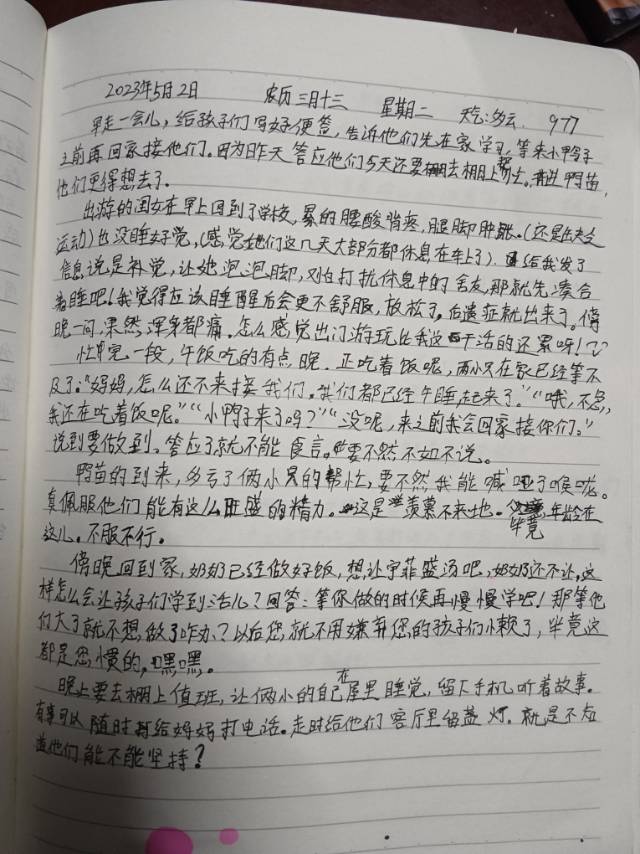 2023年5月2日 农历三月十三 星期二 天气:多云. 977
早走一会儿,给孩子们写好便签,告诉他们先在家学习,等来小鸭子
之前再回家接他们。因为昨天答应他们今天还要去棚上帮忙。进鸭苗,
他们更得想去了.
出游的闺女在早上回到了学校,累的腰酸背疼,腿脚肿胀.(还是缺乏
运动)也没睡好觉,(感觉她们这几天大部分都休息在车上了).给我发了
信息说是补觉,让她泡泡脚,对怕打扰休息中的舍友,那就先凑合
着睡吧!我觉得应该睡醒后会更不舒服,放松了,后遗症就出来了。傍
晚一问,果然浑身都痛。怎么感觉出门游玩比我这干活的还累呀!
忙完一段,午饭吃的有点晚.正吃着饭呢,两小只在家已经等不
及了:“妈妈,怎么还不来接我们。我们都已经午睡起来了。”“哦,不急,
我还在吃着饭呢。”“小鸭子来了吗?”“没呢,来之前我会回家接你们。”
说到要做到。答应了就不能食言。要不然不如不说。
鸭苗的到来,多亏了俩小只的帮忙,要不然我能喊哑了喉咙。
真佩服他们能有这么旺盛的精力。这是羡慕不来地。毕竟年龄在
这儿。不服不行。
傍晚回到家,奶奶已经做好饭,想让宇菲盛汤吧,奶奶还不让,这
样怎么会让孩子们学到活儿?回答:等你做的时候再慢慢学吧!那等他
们大了就不想做了咋办?以后您就不用嫌弃您的孩子们小懒了,毕竟这
都是您惯的,嘿嘿。
晚上要去棚上值班,让俩小的自己在屋里睡觉,留下手机听着故事。
有事可以随时给妈妈打电话。走时给他们客厅里留盏灯.就是不知
道他们能不能坚持?